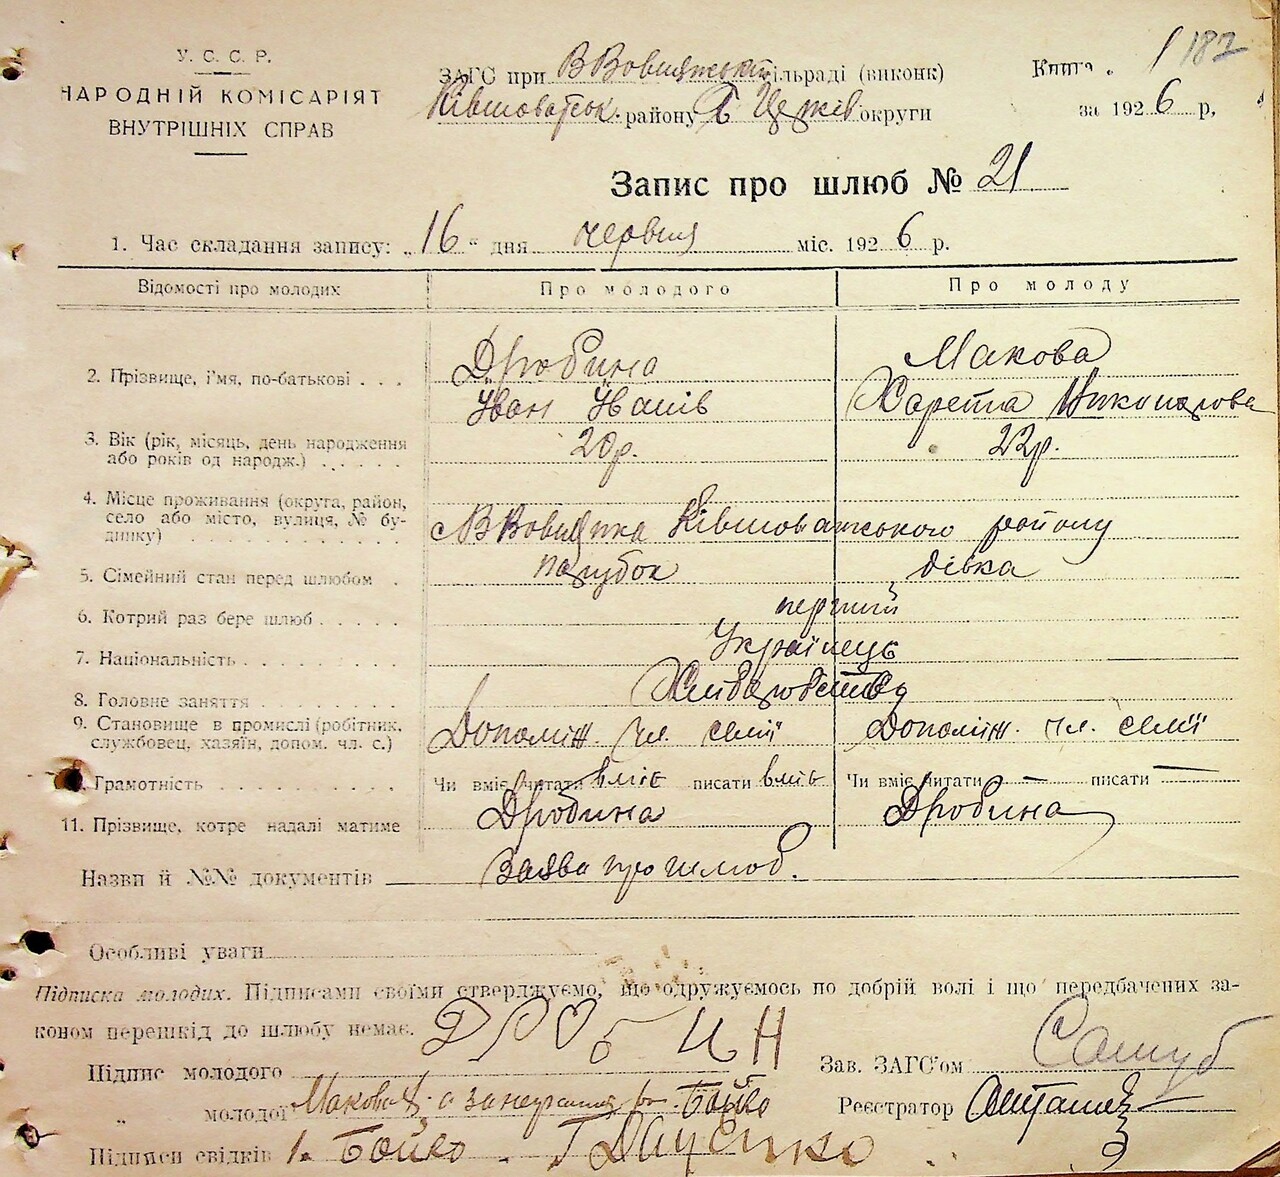 У. С. С. Р.
НАРОДНІЙ КОМІСАРІЯТ
ВНУТРІШНІХ СПРАВ
ЗАГС при сільраді (виконк)
району Б Церків округи
Книга 1 187
за 1926 р,
Запис про шлюб № 21
1. Час складання запису: „16" дня червня міс. 1926 р.
Відомості про молодих
Про молодого
Про молоду
2. Прізвище, і'мя, по-батькові . . .
Дробина
Іван Іванів
Макова
Харета
3. Вік (рік, місяць, день народження
або років од народж.) . . . . .
20р.
22р.
4. Місце проживання (округа, район,
село або місто, вулиця, № бу-
динку) . . . . . . . . . . .
Ківшоватського району
5. Сімейний стан перед шлюбом .
парубок
дівка
6. Котрий раз бере шлюб . . . . .
перший
7. Національність . . . . . . . . .
Українець
8. Головне заняття . . . . . . . .
9. Становище в промислі (робітник,
службовец, хазяїн, допом. чл. с.)
Допоміж. чл. семї
Допоміж. чл. семї
Грамотність . . . . . . . . . .
Чи вміє читати вміє писати вміє
Чи вміє читати — писати —
11. Прізвище, котре надалі матиме
Дробина
Дробина
Назви й №№ документів Заява про шлюб.
Особливі уваги
Підписка молодих. Підписами своїми стверджуємо, що одружуємось по добрій волі і що передбачених за-
коном перешкід до шлюбу немає.
Підпис молодого Дробин
Зав. ЗАГС'ом
„ молодої Макова а за неграмотня Бойко
Реєстратор
Підписи свідків 1. Бойко